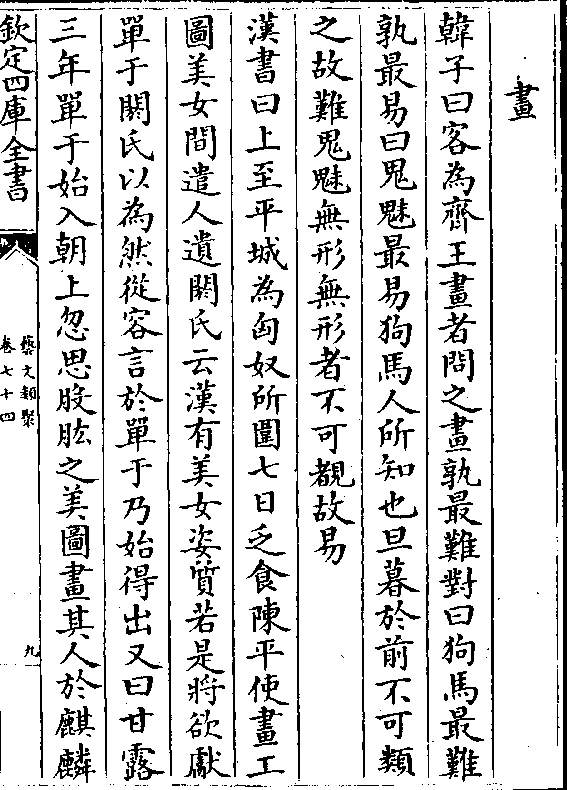 畫
韓子曰客為齊王畫者問之畫孰最難對曰狗馬最難
孰最易曰鬼魅最易狗馬人所知也旦暮於前不可類
之故難鬼魅無形無形者不可覩故易
漢書曰上至平城為匈奴所圍七日乏食陳平使畫工
圖美女間遣人遺閼氏云漢有美女姿質若是將欲獻
單于閼氏以為然從容言於單于乃始得出又曰甘露
三年單于始入朝上忽思股肱之美圖畫其人於麒麟
欽定四庫全書
藝文類聚
卷七十四
九